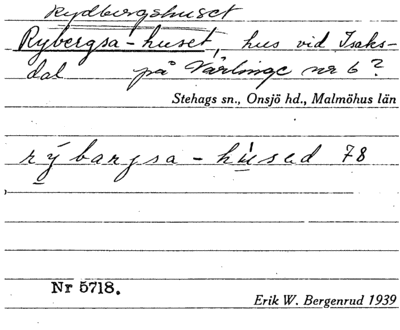 Rydbergshuset
Rybergsa-huset, hus vid Isaks-
dal på Värlinge nr 6?
Stehags sn., Onsjö hd., Malmöhus län
rýbarjsa - hùsəd 78
Nr 5718.
Erik W. Bergenrud 1939